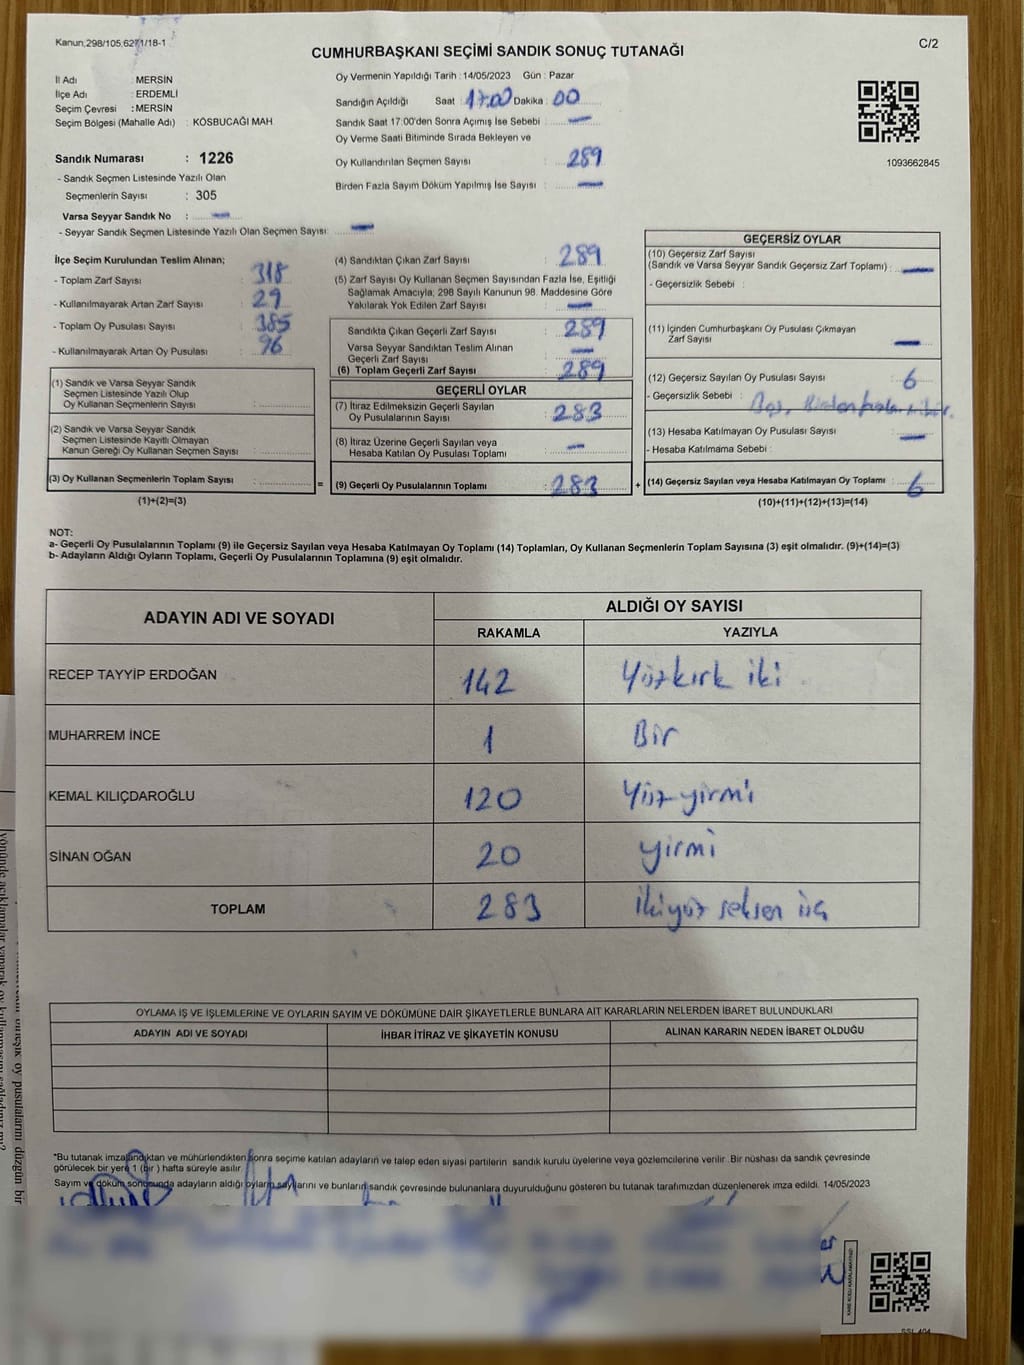 Kanun,298/105,627/1/18-1
C/2
CUMHURBAŞKANI SEÇİMİ SANDIK SONUÇ TUTANAĞI
İl Adı : MERSİN
İlçe Adı : ERDEMLİ
Seçim Çevresi : MERSİN
Seçim Bölgesi (Mahalle Adı) : KÖSBUCAĞI MAH.
Sandık Numarası : 1226
- Sandık Seçmen Listesinde Yazılı Olan
Seçmenlerin Sayısı : 305
Varsa Seyyar Sandık No : —
- Seyyar Sandık Seçmen Listesinde Yazılı Olan Seçmen Sayısı: —
Oy Vermenin Yapıldığı Tarih : 14/05/2023 Gün : Pazar
Sandığın Açıldığı Saat : 17:00 Dakika : 00
Sandık Saat 17:00'den Sonra Açımış İse Sebebi : —
Oy Verme Saati Bitiminde Sırada Bekleyen ve
Oy Kullandırılan Seçmen Sayısı : 289
Birden Fazla Sayım Döküm Yapılmış İse Sayısı : —
1093662845
İlçe Seçim Kurulundan Teslim Alınan;
- Toplam Zarf Sayısı : 318
- Kullanılmayarak Artan Zarf Sayısı : 29
- Toplam Oy Pusulası Sayısı : 385
- Kullanılmayarak Artan Oy Pusulası : 96
(1) Sandık ve Varsa Seyyar Sandık
Seçmen Listesinde Yazılı Olup
Oy Kullanan Seçmenlerin Sayısı :
(2) Sandık ve Varsa Seyyar Sandık
Seçmen Listesinde Kayıtlı Olmayan
Kanun Gereği Oy Kullanan Seçmen Sayısı :
(3) Oy Kullanan Seçmenlerin Toplam Sayısı :
(1)+(2)=(3)
(4) Sandıktan Çıkan Zarf Sayısı : 289
(5) Zarf Sayısı Oy Kullanan Seçmen Sayısından Fazla İse, Eşitliği
Sağlamak Amacıyla; 298 Sayılı Kanunun 98. Maddesine Göre
Yakılarak Yok Edilen Zarf Sayısı : —
Sandıkta Çıkan Geçerli Zarf Sayısı : 289
Varsa Seyyar Sandıktan Teslim Alınan
Geçerli Zarf Sayısı : —
(6) Toplam Geçerli Zarf Sayısı : 289
GEÇERLİ OYLAR
(7) İtiraz Edilmeksizin Geçerli Sayılan
Oy Pusulalarının Sayısı : 283
(8) İtiraz Üzerine Geçerli Sayılan veya
Hesaba Katılan Oy Pusulası Toplamı : —
= (9) Geçerli Oy Pusulalarının Toplamı : 283 +
GEÇERSİZ OYLAR
(10) Geçersiz Zarf Sayısı
(Sandık ve Varsa Seyyar Sandık Geçersiz Zarf Toplamı) : —
- Geçersizlik Sebebi :
(11) İçinden Cumhurbaşkanı Oy Pusulası Çıkmayan
Zarf Sayısı : —
(12) Geçersiz Sayılan Oy Pusulası Sayısı : 6
- Geçersizlik Sebebi : Boş,
(13) Hesaba Katılmayan Oy Pusulası Sayısı : —
- Hesaba Katılmama Sebebi :
(14) Geçersiz Sayılan veya Hesaba Katılmayan Oy Toplamı : 6
(10)+(11)+(12)+(13)=(14)
NOT:
a- Geçerli Oy Pusulalarının Toplamı (9) ile Geçersiz Sayılan veya Hesaba Katılmayan Oy Toplamı (14) Toplamları, Oy Kullanan Seçmenlerin Toplam Sayısına (3) eşit olmalıdır. (9)+(14)=(3)
b- Adayların Aldığı Oyların Toplamı, Geçerli Oy Pusulalarının Toplamına (9) eşit olmalıdır.
ADAYIN ADI VE SOYADI
ALDIĞI OY SAYISI
RAKAMLA YAZIYLA
RECEP TAYYİP ERDOĞAN 142 Yüzkırk iki
MUHARREM İNCE 1 Bir
KEMAL KILIÇDAROĞLU 120 Yüz yirmi
SİNAN OĞAN 20 yirmi
TOPLAM 283 ikiyüz seksen üç
OYLAMA İŞ VE İŞLEMLERİNE VE OYLARIN SAYIM VE DÖKÜMÜNE DAİR ŞİKAYETLERLE BUNLARA AİT KARARLARIN NELERDEN İBARET BULUNDUKLARI
ADAYIN ADI VE SOYADI İHBAR İTİRAZ VE ŞİKAYETİN KONUSU ALINAN KARARIN NEDEN İBARET OLDUĞU
"Bu tutanak imzalandıktan ve mühürlendikten sonra seçime katılan adayların ve talep eden siyasi partilerin sandık kurulu üyelerine veya gözlemcilerine verilir. Bir nüshası da sandık çevresinde
görülecek bir yere 1 (bir) hafta süreyle asılır.
Sayım ve döküm sonucunda adayların aldığı oyların sayılarını ve bunların sandık çevresinde bulunanlara duyurulduğunu gösteren bu tutanak tarafımızdan düzenlenerek imza edildi. 14/05/2023